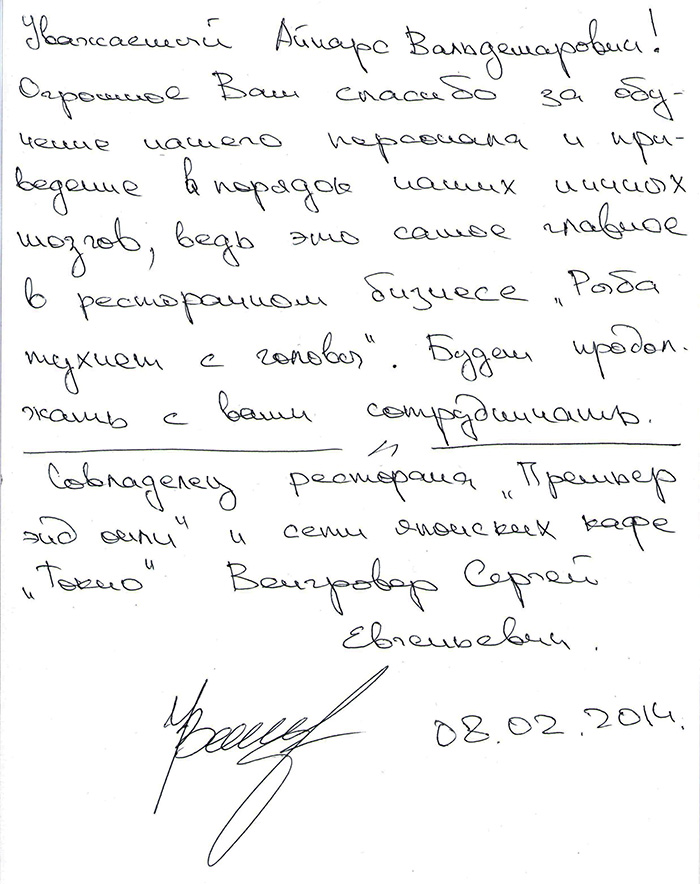 Уважаемый Айнарс Вальдемарович!
Огромное Вам спасибо за обу-
чение нашего персонала и при-
ведение в порядок наших личных
мозгов, ведь это самое главное
в ресторанном бизнесе „Рыба
тухнет с головы". Будем продол-
жать с вами сотрудничать.
Совладелец ресторана „Премьер
энд оили" и сети японских кафе
„Токио" Венгровер Сергей
Евгеньевич.
08.02.2014.